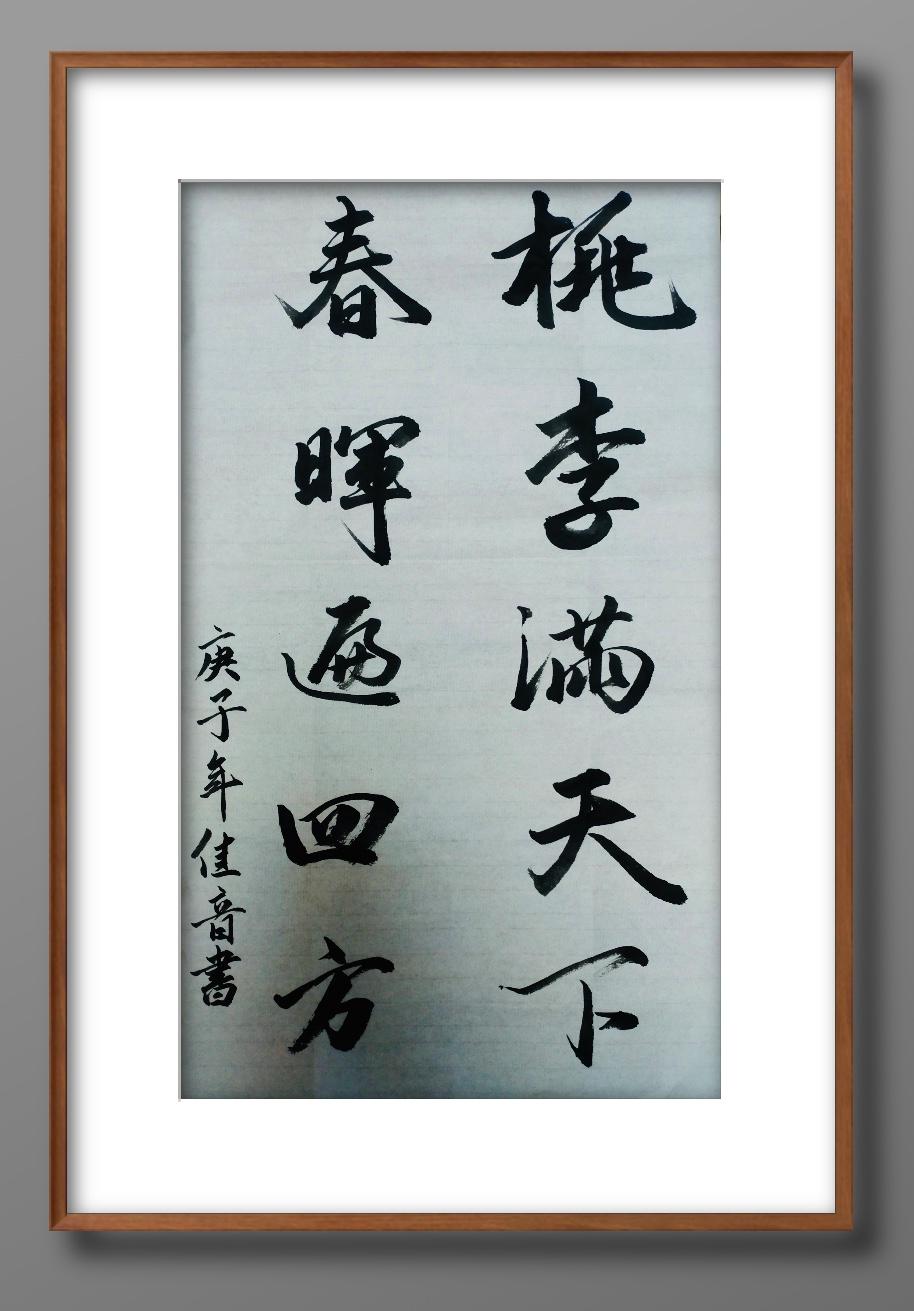 桃李滿天下
春暉遍四方
庚子年佳音書